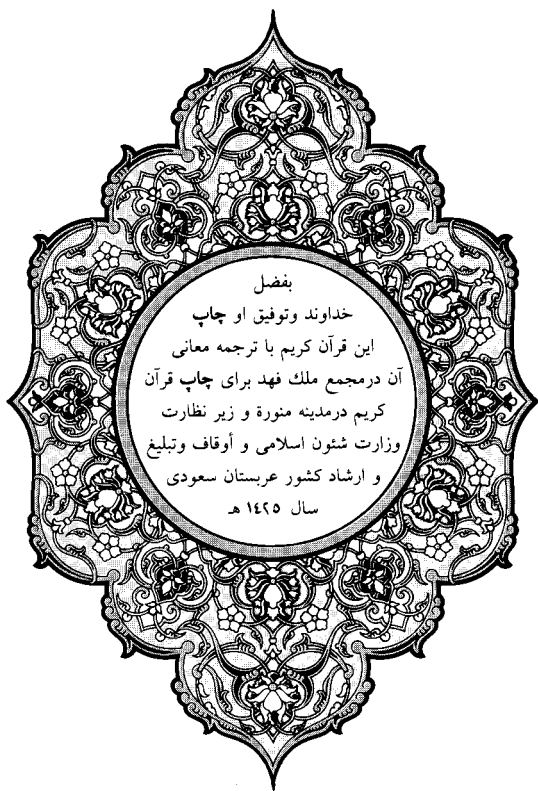 بفضل
خداوند وتوفيق او چاپ
اين قرآن كريم با ترجمه معانى
آن درمجمع ملك فهد براى چاپ قرآن
كريم درمدينه منورة و زير نظارت
وزارت شئون اسلامى و أوقاف وتبليغ
و ارشاد كشور عربستان سعودى
سال ١٤٢٥ هـ